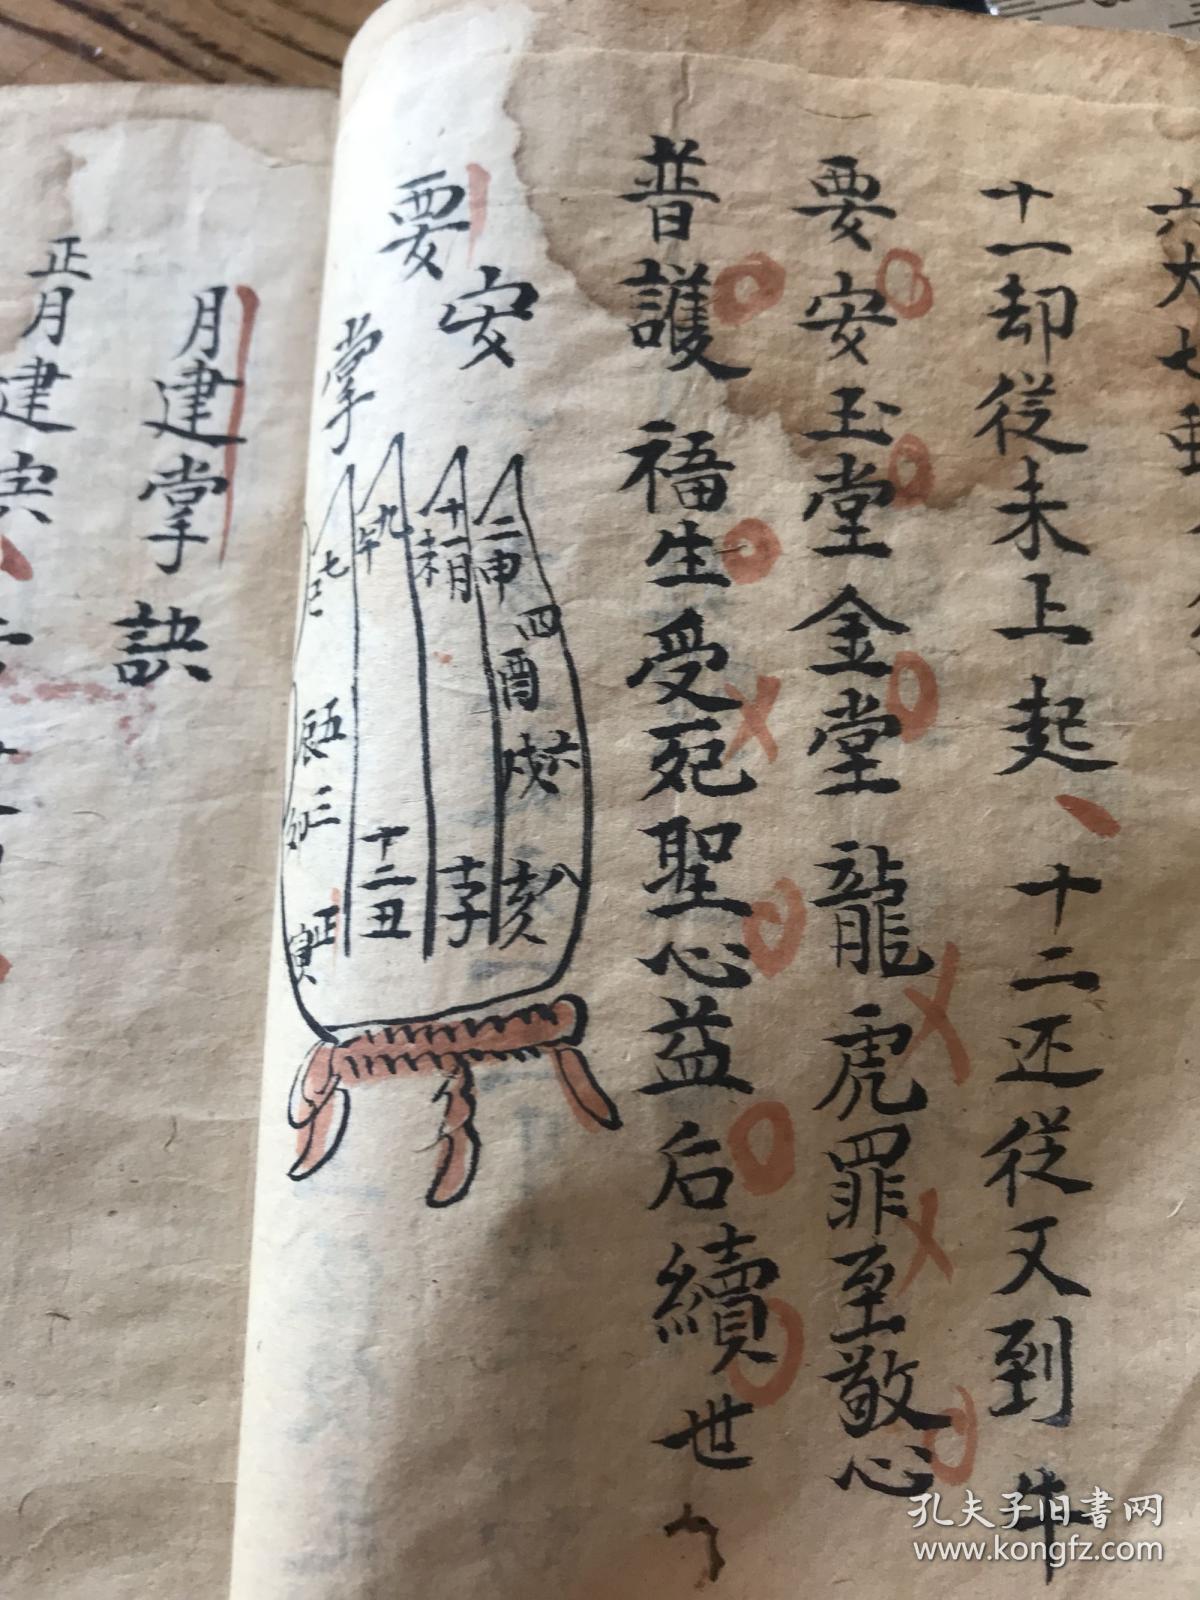 六犬七
十一却従未上起、十二还従又到牛
要安玉堂金堂龍虎罪至敬心
普護福生受死聖心益后續世
安
要
掌
二申
四酉
六戌
八亥
十一月未
十子
九午
十二丑
七巳
五辰
三卯
正寅
月建掌訣
正月建寅
孔夫子旧书网
www.kongfz.com